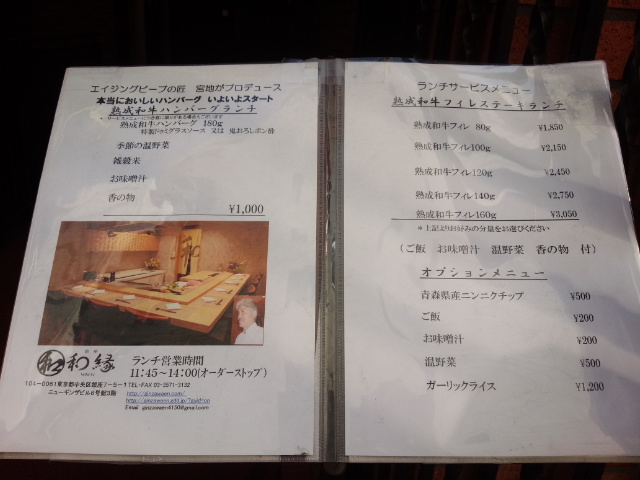 エイジングビーフの匠　宮地がプロデュース
本当においしいハンバーグ　いよいよスタート
熟成和牛ハンバーグランチ
熟成和牛ハンバーグ 180g
特製ドゥミグラスソース 又は 鬼おろしポン酢
季節の温野菜
雑穀米
お味噌汁
香の物
¥1,000
和縁
ランチ営業時間
11:45～14:00(オーダーストップ)
104-0061東京都中央区銀座7-5-1 TEL・FAX 03-2571-3132
ニューギンザビル6号館3階
http://ginzawaen.com/
Email ginzawaen4130@gmail.com
ランチサービスメニュー
熟成和牛フィレステーキランチ
熟成和牛フィレ 80g ¥1,850
熟成和牛フィレ100g ¥2,150
熟成和牛フィレ120g ¥2,450
熟成和牛フィレ140g ¥2,750
熟成和牛フィレ160g ¥3,050
*上記よりお好みの分量をお選びください
（ご飯　お味噌汁　温野菜　香の物　付）
オプションメニュー
青森県産ニンニクチップ ¥500
ご飯 ¥200
お味噌汁 ¥200
温野菜 ¥500
ガーリックライス ¥1,200